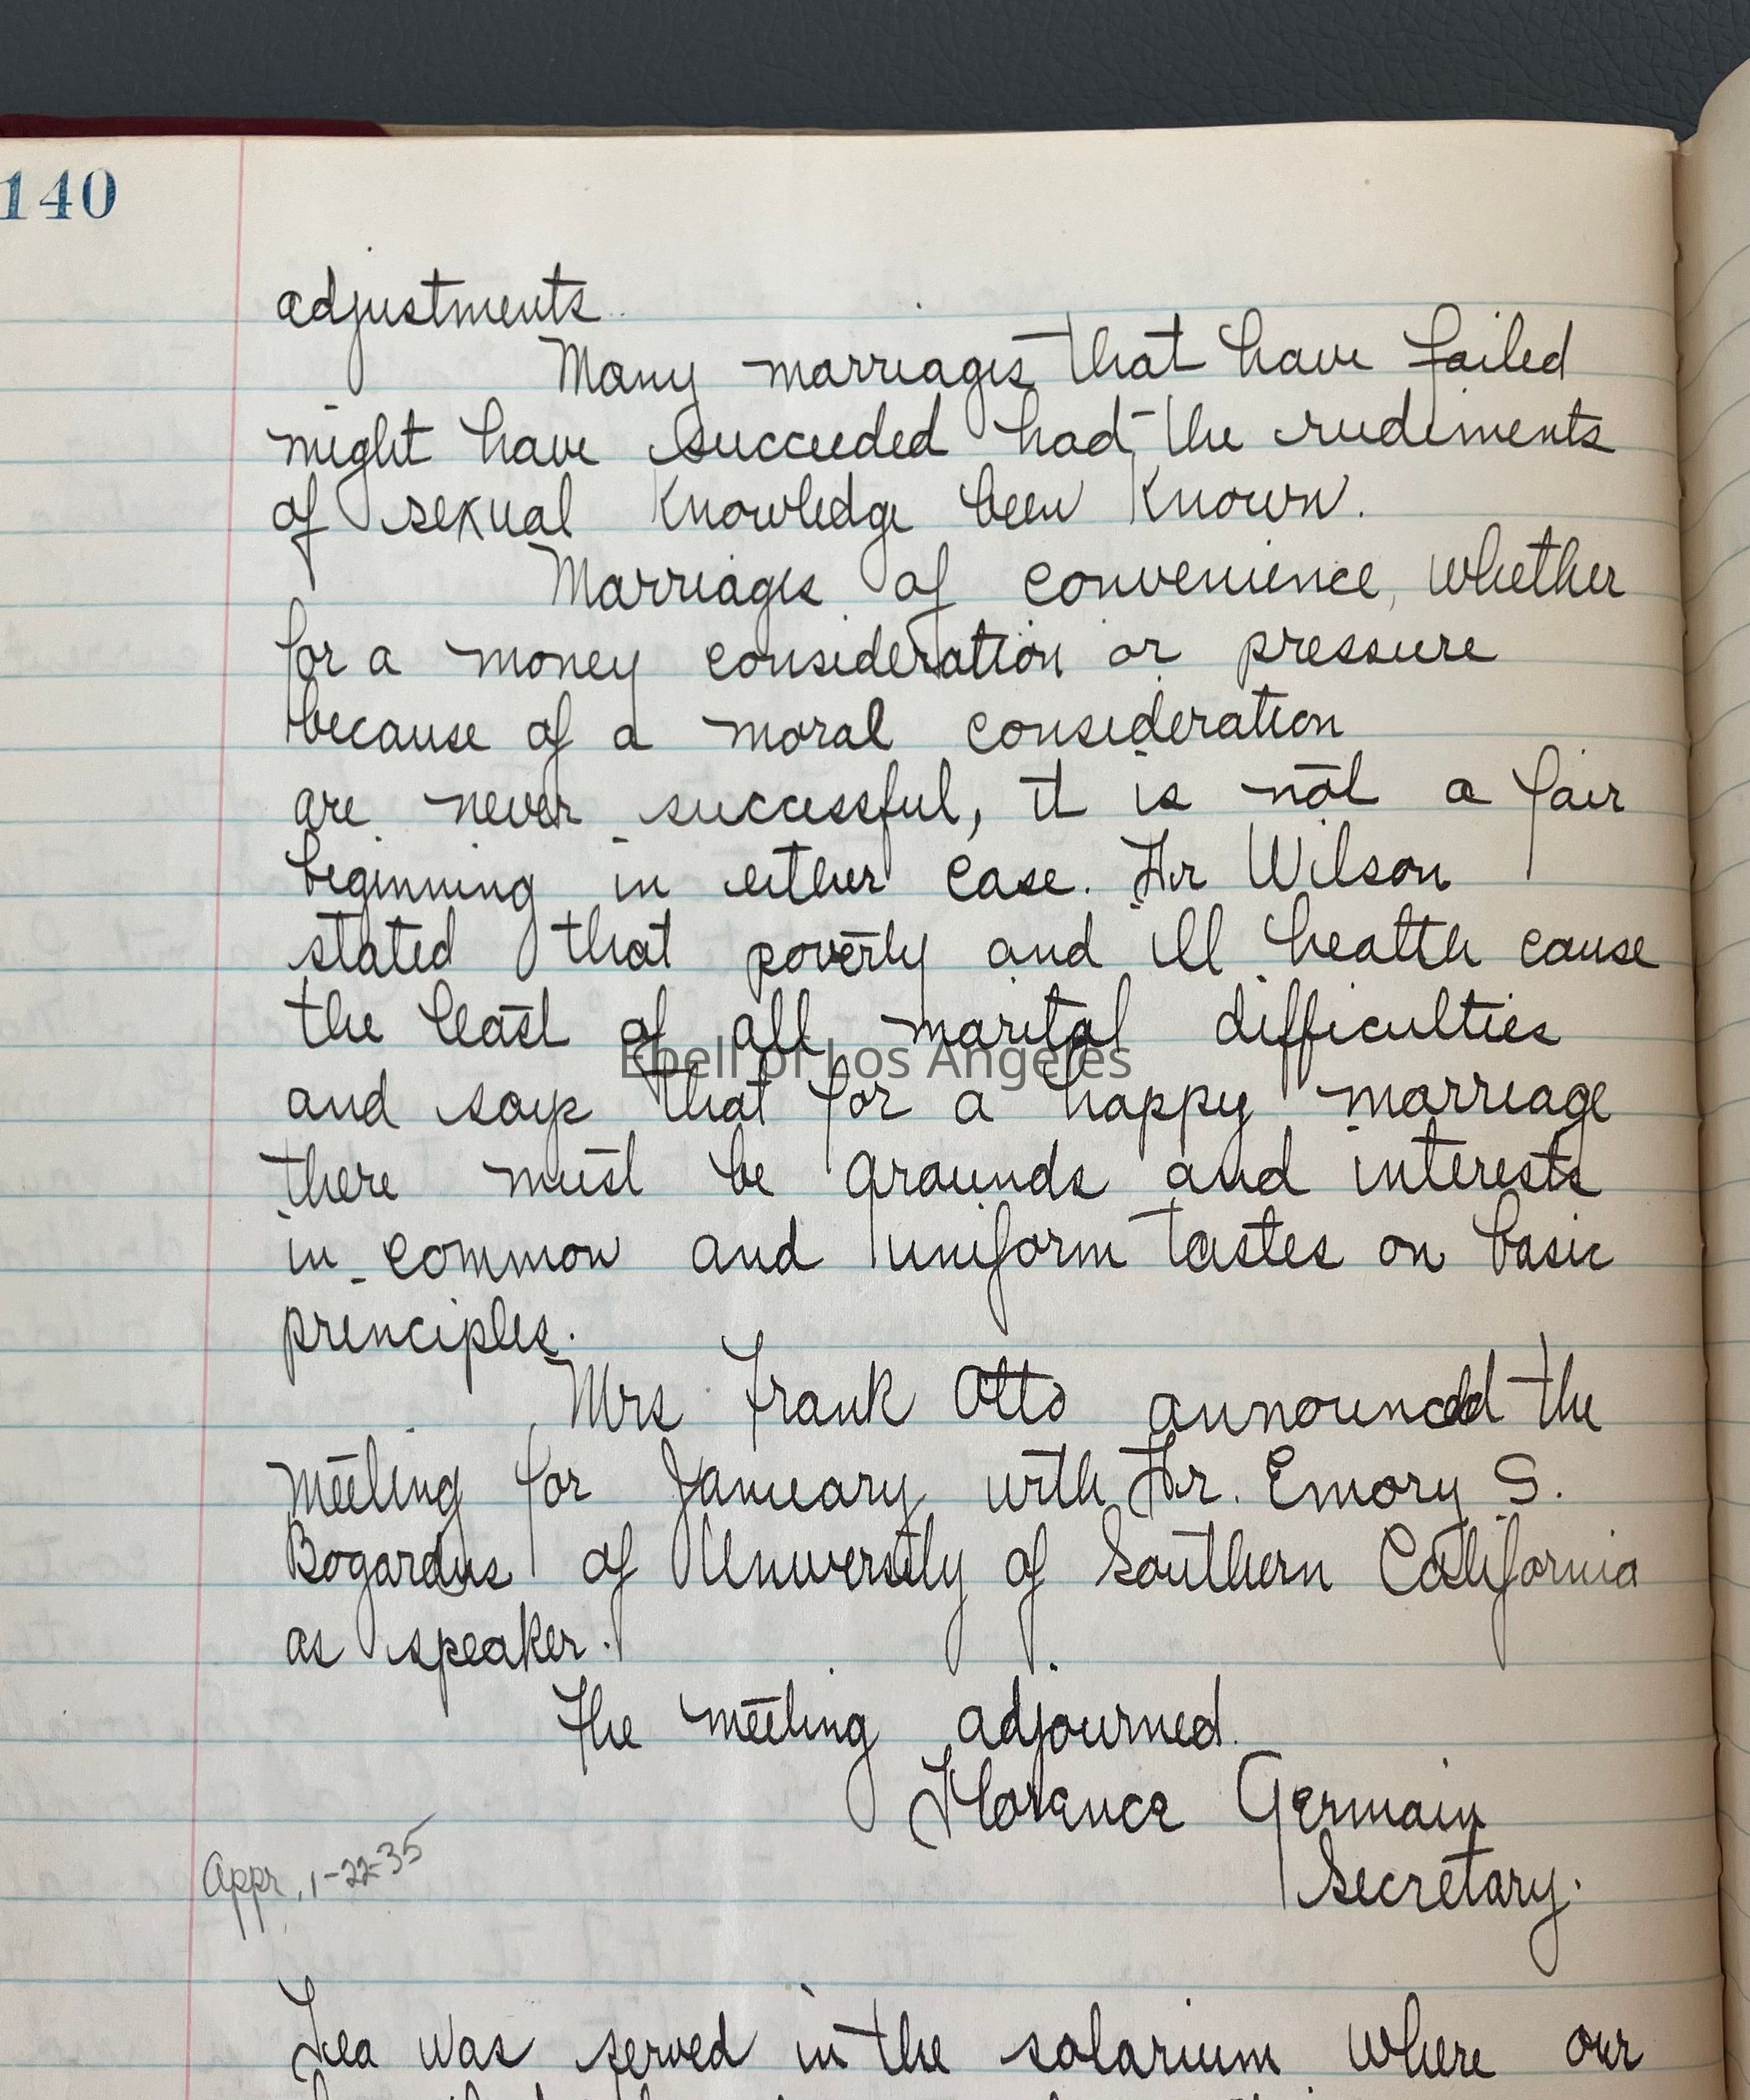 140
adjustments.
Many marriages that have failed
might have succeeded had the rudiments
of sexual knowledge been known.
Marriages of convenience, whether
for a money consideration or pressure
because of a moral consideration
are never successful, it is not a fair
beginning in either case. Dr Wilson
stated that poverty and ill health cause
the least of all marital difficulties
Ebell of Los Angeles
and says that for a happy marriage
there must be grounds and interests
in common and uniform tastes on basic
principles.
Mrs Frank Otto announced the
meeting for January with Dr. Emory S.
Bogardus of University of Southern California
as speaker.
The meeting adjourned.
Florence Germain
Secretary.
Appr. 1-22-35
Tea was served in the solarium where our